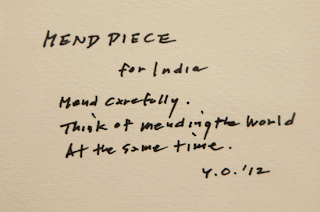 MEND PIECE
for India
Mend carefully.
Think of mending the World
At the same time.
Y.O. '12